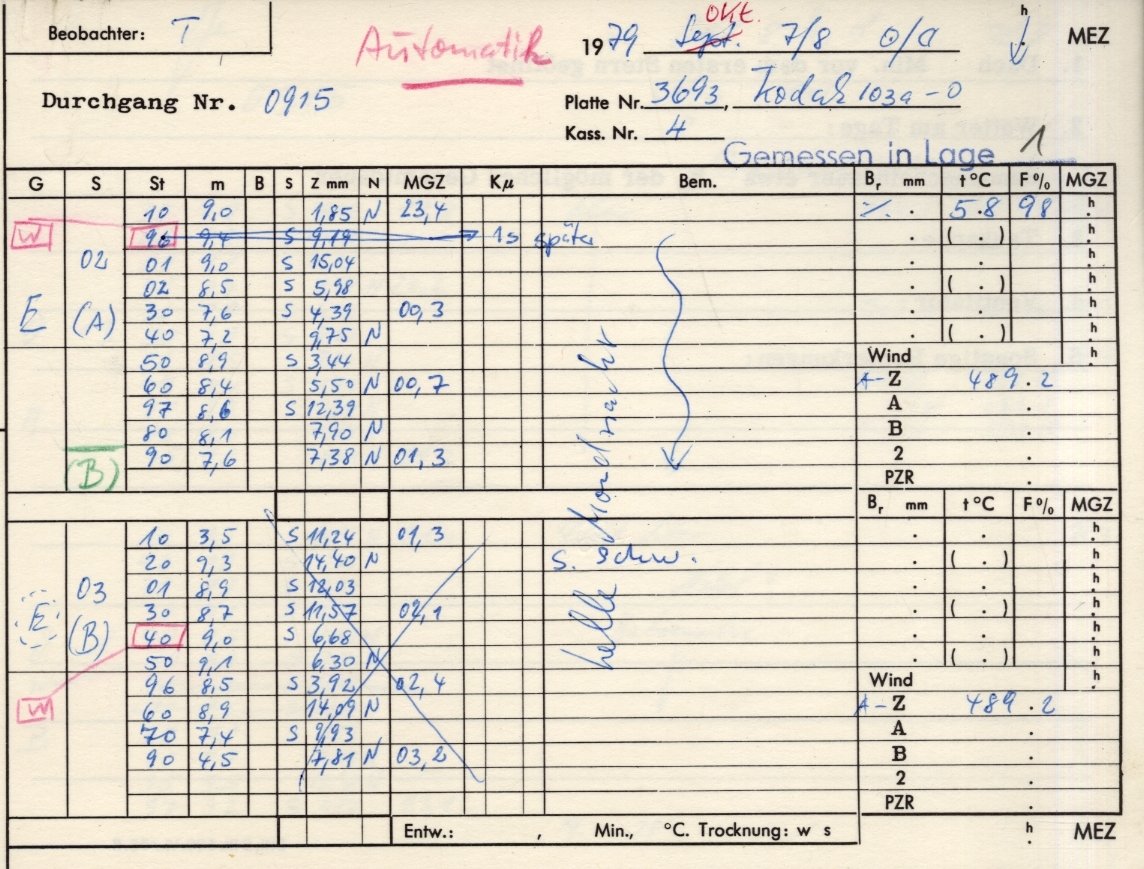 Beobachter: T
Automatik
1979 Sept. Okt. 7/8 0/a h MEZ
Durchgang Nr. 0915
Platte Nr. 3693, Kodak 103a-O
Kass. Nr. 4
Gemessen in Lage 1
G S St m B S Z mm N MGZ Kμ Bem. Br mm t°C F% MGZ
10 9,0 1,85 N 23,4 ./. . 5.8 98 h
W 96 9,4 S 9,19 1s später . ( . )
02 01 9,0 S 15,04 . . h
02 8,5 S 5,98 . ( . ) h
E (A) 30 7,6 S 4,39 00,3 . . h
40 7,2 9,75 N . ( . )
50 8,9 S 3,44 Wind h
60 8,4 5,50 N 00,7 A-Z 489.2
97 8,6 S 12,39 A .
80 8,1 7,90 N B .
(B) 90 7,6 7,38 N 01,3 2 .
PZR .
helle Mondnacht
Br mm t°C F% MGZ
10 3,5 S 11,24 01,3 . . h
20 9,3 14,40 N s. schw. . ( . ) h
03 01 8,9 S 12,03 . . h
E 30 8,7 S 11,57 02,1 . ( . ) h
(B) 40 9,0 S 6,68 . . h
50 9,1 6,30 N . ( . ) h
96 8,5 S 3,92 02,4 Wind h
W 60 8,9 14,09 N A-Z 489.2
70 7,4 S 9,93 A .
90 4,5 7,81 N 03,2 B .
2 .
PZR .
Entw.: , Min., °C. Trocknung: w s h MEZ